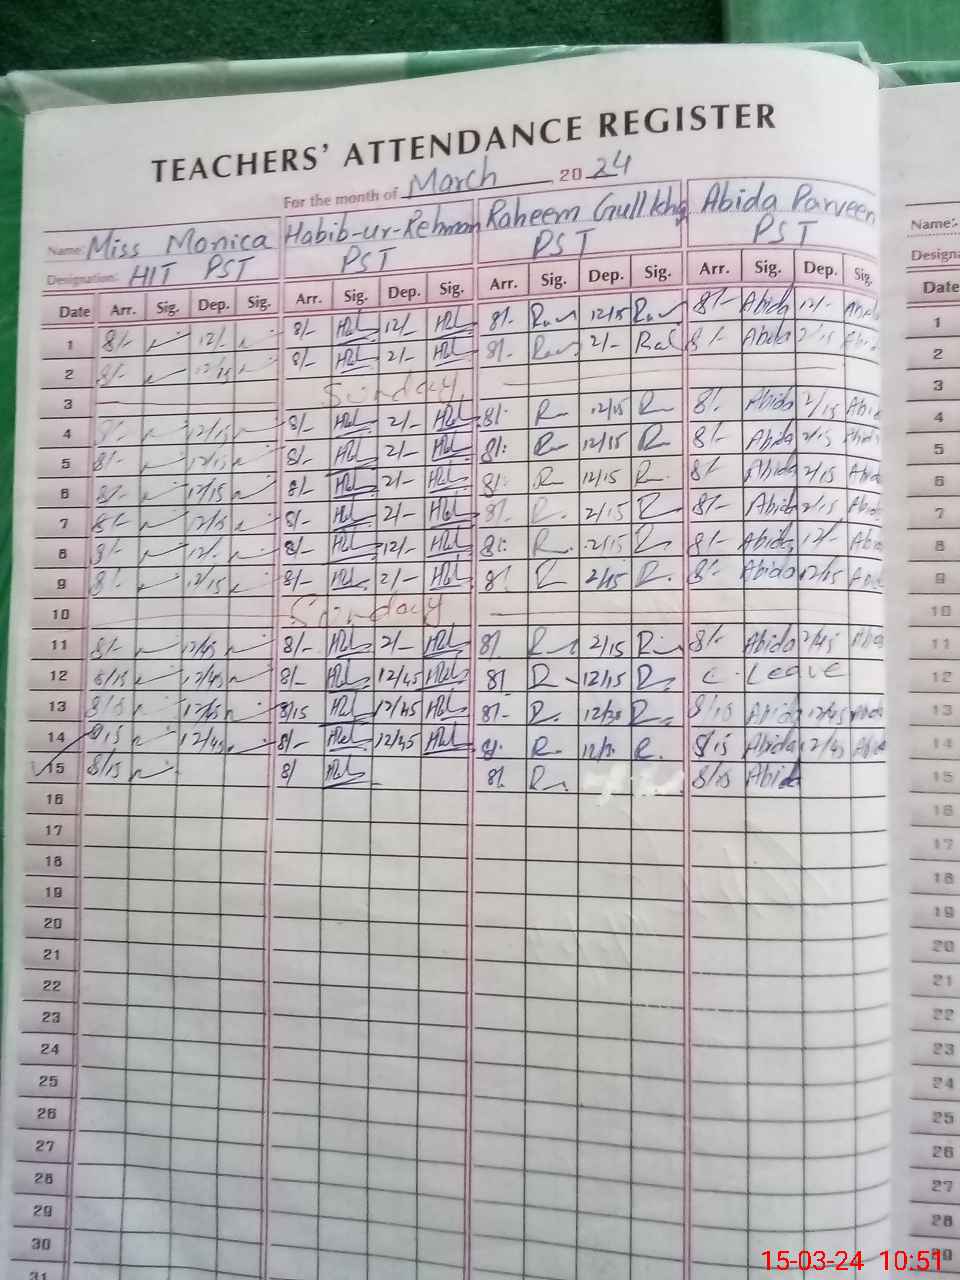 TEACHERS' ATTENDANCE REGISTER
For the month of March 2024
Name: Miss Monica Habib-ur-Rehman Raheem Gull khan Abida Parveen Name:-
Designation: HIT PST PST PST PST
Date Arr. Sig. Dep. Sig. Arr. Sig. Dep. Sig. Arr. Sig. Dep. Sig. Arr. Sig. Dep. Sig. Date
1 8/- 12/- 8/- 12/- 8/- 12/15 8/- Abida 12/- Abida 1
2 8/- 12/15 8/- 2/- 8/- 2/- 8/- Abida 2/15 Abida 2
3 Sunday 3
4 8/- 12/15 8/- 2/- 8/- 12/15 8/- Abida 2/15 Abida 4
5 8/- 12/15 8/- 2/- 8/- 12/15 8/- Abida 2/15 Abida 5
6 8/- 12/15 8/- 2/- 8/- 12/15 8/- Abida 2/15 Abida 6
7 8/- 12/15 8/- 2/- 8/- 2/15 8/- Abida 2/15 Abida 7
8 8/- 12/- 8/- 12/- 8/- 2/15 8/- Abida 12/- Abida 8
9 8/- 12/15 8/- 2/- 8/- 2/15 8/- Abida 12/15 Abida 9
10 Sunday 10
11 8/- 12/45 8/- 2/- 8/- 2/15 8/- Abida 2/45 Abida 11
12 8/15 12/45 8/- 12/45 8/- 12/15 C. Leave 12
13 8/15 12/45 8/15 12/45 8/- 12/30 8/15 Abida 12/45 Abida 13
14 8/15 12/45 8/- 12/45 8/- 8/15 Abida 12/45 Abida 14
15 8/15 8/ 8/- 8/15 Abida 15
16 16
17 17
18 18
19 19
20 20
21 21
22 22
23 23
24 24
25 25
26 26
27 27
28 28
29 29
30
31
15-03-24 10:51